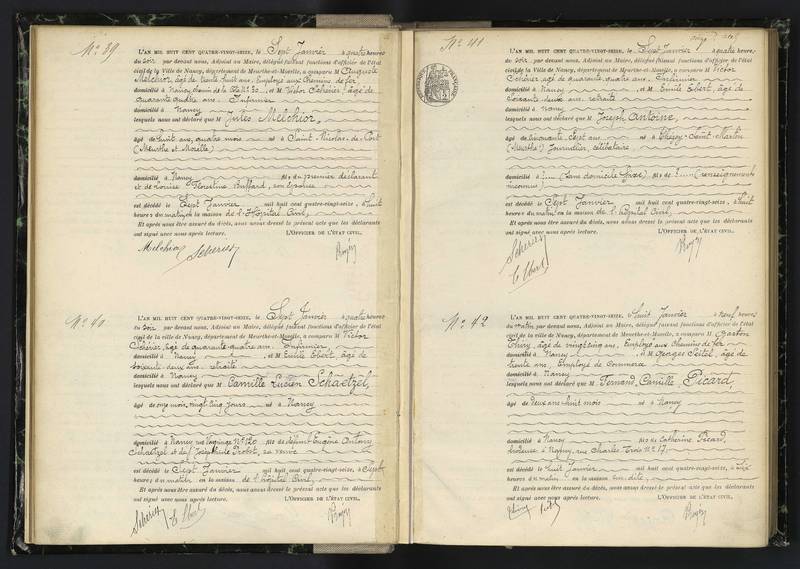 N° 39
L'AN MIL HUIT CENT QUATRE-VINGT-SEIZE, le Sept Janvier à quatre heures
du soir par devant nous, Adjoint au Maire, délégué faisant fonctions d'officier de l'état
civil de la Ville de Nancy, département de Meurthe-et-Moselle, a comparu M Auguste
Melchior, âgé de trente huit ans, Employé aux Chemins de fer
domicilié à Nancy, et M Victor Sebérier âgé de
quarante quatre ans. Infirmier
domicilié à Nancy
lesquels nous ont déclaré que M Jules Melchior,
âgé de huit ans, quatre mois né à Saint-Nicolas-de-Port
(Meurthe et Moselle)
domicilié à Nancy fils du premier déclarant
et de Louise Florentine Buffard, son épouse
est décédé le Sept Janvier mil huit cent quatre-vingt-seize, à huit
heures du matin en la maison de l'Hôpital Civil,
Et après nous être assuré du décès, nous avons dressé le présent acte que les déclarants
ont signé avec nous après lecture. L'OFFICIER DE L'ÉTAT CIVIL,
Melchior
N° 40
L'AN MIL HUIT CENT QUATRE-VINGT-SEIZE, le Sept Janvier à quatre heures
du soir par devant nous, Adjoint au Maire, délégué faisant fonctions d'officier de l'état
civil de la ville de Nancy, département de Meurthe-et-Moselle, a comparu M Victor
Sebérier, âgé de quarante quatre ans. Infirmier
domicilié à Nancy, et M Emile Ebert, âgé de
soixante deux ans, retraité
domicilié à Nancy
lesquels nous ont déclaré que M Camille Lucien Schaetzel,
âgé de onze mois, vingt cinq jours né à Nancy
domicilié à Nancy N° 120 fils de défunt Eugène Antoine
Schaetzel et de Joséphine sa veuve
est décédé le Sept Janvier mil huit cent quatre-vingt-seize, à Sept
heures du matin en la maison de l'hôpital Civil,
Et après nous être assuré du décès, nous avons dressé le présent acte que les déclarants
ont signé avec nous après lecture. L'OFFICIER DE L'ÉTAT CIVIL,
N° 41
L'AN MIL HUIT CENT QUATRE-VINGT-SEIZE, le Sept Janvier à quatre heures
du soir par devant nous, Adjoint au Maire, délégué faisant fonctions d'officier de l'état
civil de la Ville de Nancy, département de Meurthe-et-Moselle, a comparu M Victor
Sebérier âgé de quarante quatre ans, Infirmier
domicilié à Nancy, et M Emile Ebert, âgé de
soixante deux ans, retraité
domicilié à Nancy
lesquels nous ont déclaré que M Joseph Antoine,
âgé de cinquante sept ans né à Saint-Martin
(Meurthe) Journalier, célibataire
domicilié à (sans domicile fixe) fils de (renseignements
inconnus)
est décédé le Sept Janvier mil huit cent quatre-vingt-seize, à huit
heures du matin en la maison de l'hôpital Civil,
Et après nous être assuré du décès, nous avons dressé le présent acte que les déclarants
ont signé avec nous après lecture. L'OFFICIER DE L'ÉTAT CIVIL,
N° 42
L'AN MIL HUIT CENT QUATRE-VINGT-SEIZE, le huit Janvier à neuf heures
du matin par devant nous, Adjoint au Maire, délégué faisant fonctions d'officier de l'état
civil de la ville de Nancy, département de Meurthe-et-Moselle, a comparu M Gaston
Thiry, âgé de vingt cinq ans, Employé aux Chemins de fer
domicilié à Nancy, et M Georges Seitel, âgé de
trente ans, Employé de Commerce
domicilié à Nancy
lesquels nous ont déclaré que M Fernand, Camille, Picard,
âgé de deux ans huit mois né à Nancy
domicilié à Nancy fils de Catherine Picard,
brodeuse à Nancy, rue Charles Trois N° 17
est décédé le huit Janvier mil huit cent quatre-vingt-seize, à six
heures du matin en la maison sus-dite,
Et après nous être assuré du décès, nous avons dressé le présent acte que les déclarants
ont signé avec nous après lecture. L'OFFICIER DE L'ÉTAT CIVIL,